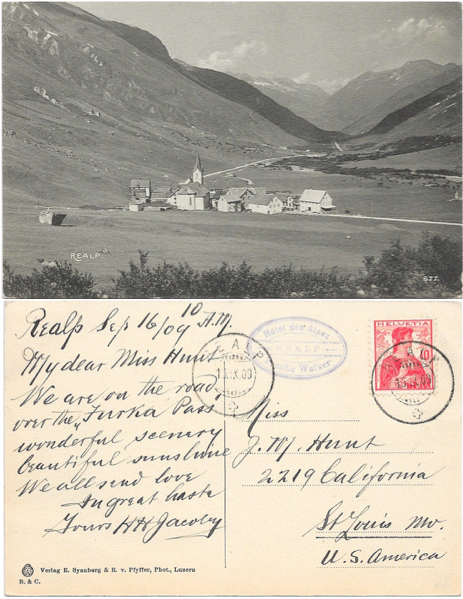 REALP.
677.
Realp Sep 16/09 10 A.M
My dear Miss Hunt
We are on the road
over the "Furka Pass
wonderful scenery
beautiful sunshine
We all send love
In great haste
Yours HH Jacoby
REALP
Hôtel des Alpes
REALP
Walker
HELVETIA
10
Miss
J. W. Hunt
2219 California
St Louis Mo.
U.S. America
Verlag E. Synnberg & R. v. Pfyffer, Phot., Luzern
B. & C.